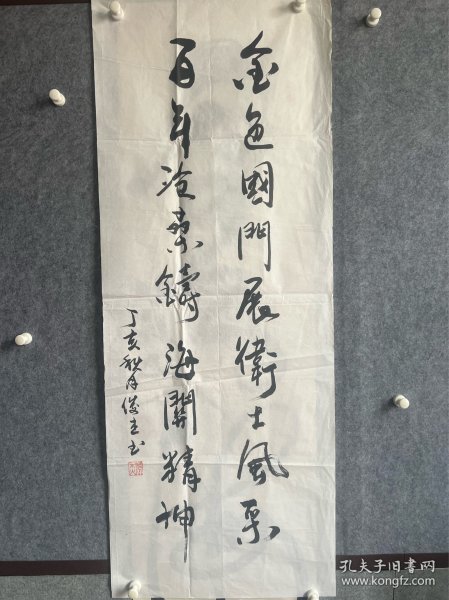 金色國門展衛士風采
百年滄桑鑄海關精神
丁亥秋月俊生书
孔夫子旧书网
www.kongfz.com